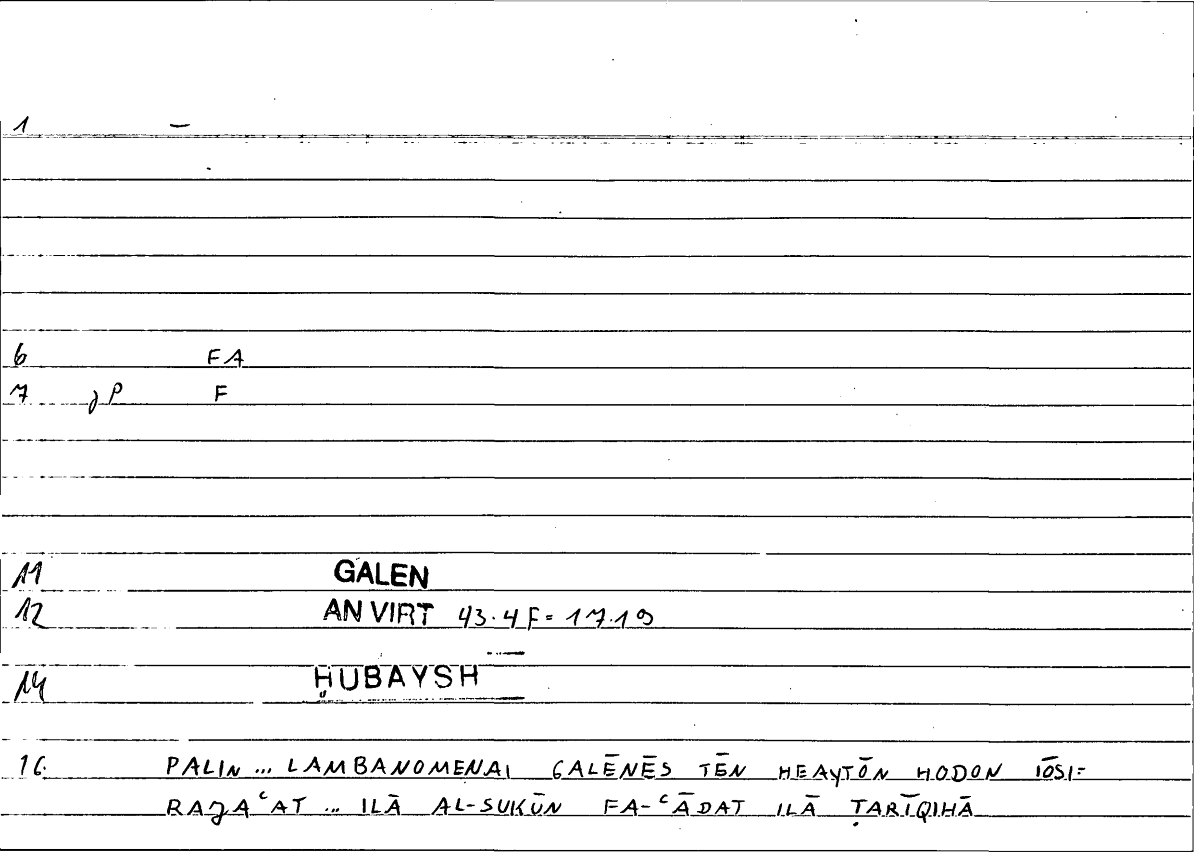 1 –
6 FA
7 gP F
11 GALEN
12 AN VIRT 43.4 F = 17.19
14 ḤUBAYSH
16 PALIN ... LAMBANOMENAI GALĒNĒS TĒN HEAYTŌN HODON IŌSI=
RAJAʿAT ... ILĀ AL-SUKŪN FA-ʿĀDAT ILĀ ṬARĪQIHĀ